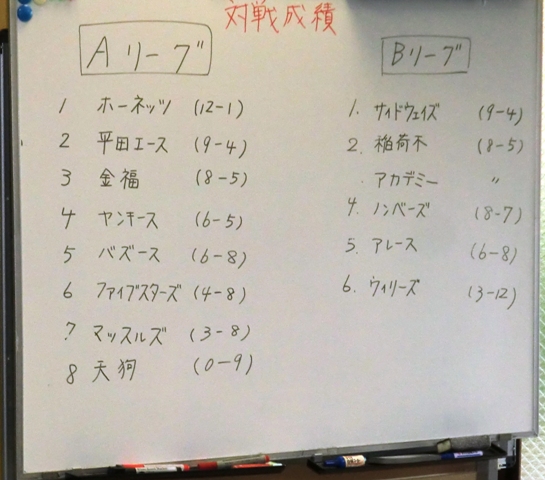 対戦成績
Aリーグ
1 ホーネッツ (12-1)
2 平田エース (9-4)
3 金福 (8-5)
4 ヤンキース (6-5)
5 バズース (6-8)
6 ファイブスターズ (4-8)
7 マッスルズ (3-8)
8 天狗 (0-9)
Bリーグ
1. サイドウェイズ (9-4)
2. 稲荷木 (8-5)
. アカデミー 〃
4. ノンベーズ (8-7)
5. アレース (6-8)
6. ウィリーズ (3-12)